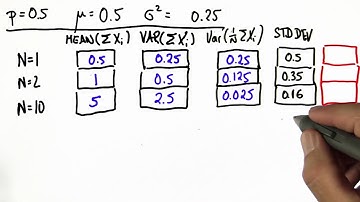 p=0.5 μ=0.5 σ²= 0.25
MEAN(ΣXi) VAR(ΣXi) Var(1/N ΣXi) STD DEV
N=1 0.5 0.25 0.25 0.5
N=2 1 0.5 0.125 0.35
N=10 5 2.5 0.025 0.16